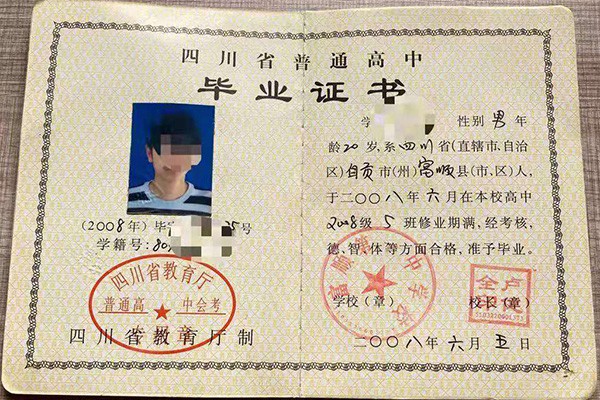 四川省普通高中
毕业证书
(2008年)毕 25号
学籍号:80
四川省教育厅
普通高 中会考
专用章
四川省教育厅制
学 性别 男 年
龄 20 岁,系 四川 省(直辖市、自治
区) 自贡 市(州) 富顺 县(市、区)人,
于二〇〇八年 六 月在本校高中
2008级 5 班修业期满,经考核,
德、智、体等方面合格,准予毕业。
富顺 中学校
学校(章) 校长(章)
二〇〇八年 六 月 五 日